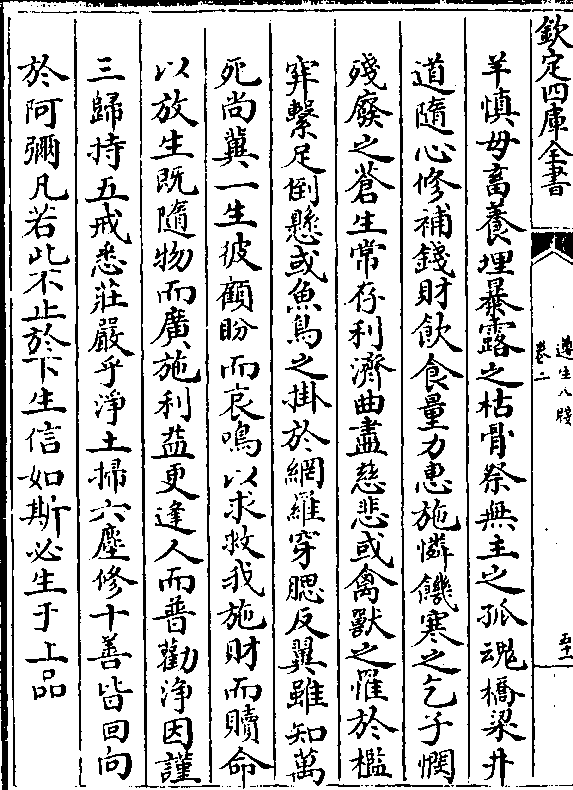 欽定四庫全書
遵生八牋
卷二
羊慎毋畜養埋暴露之枯骨祭無主之孤魂橋梁井
道隨心修補錢財飲食量力惠施憐饑寒之乞子憫
殘廢之蒼生常存利濟曲盡慈悲或禽獸之罹於檻
穽繫足倒懸或魚鳥之掛於網羅穿腮反翼雖知萬
死尚冀一生彼顧盼而哀鳴以求救我施財而贖命
以放生既隨物而廣施利益更逢人而普勸淨因謹
三歸持五戒悉莊嚴乎淨土掃六塵修十善皆回向
於阿彌凡若此不止於下生信如斯必生于上品